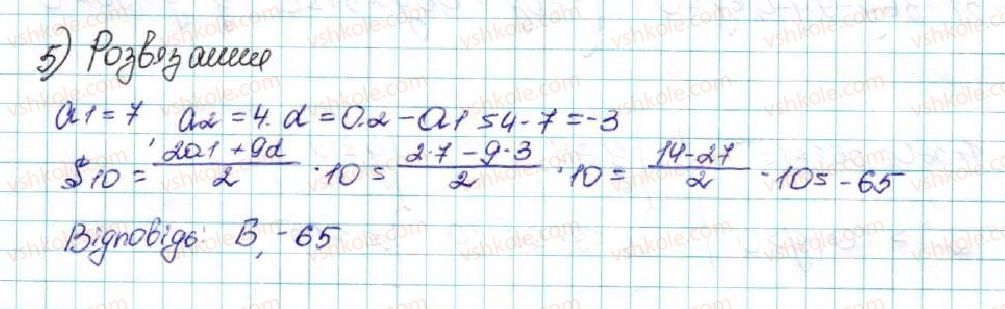 5) Розвязання
a1 = 7 a2 = 4. d = a2 - a1 = 4 - 7 = -3
S10 = 2a1 + 9d / 2 · 10 = 2·7 - 9·3 / 2 · 10 = 14-27 / 2 · 10 = -65
Відповідь: Б, -65